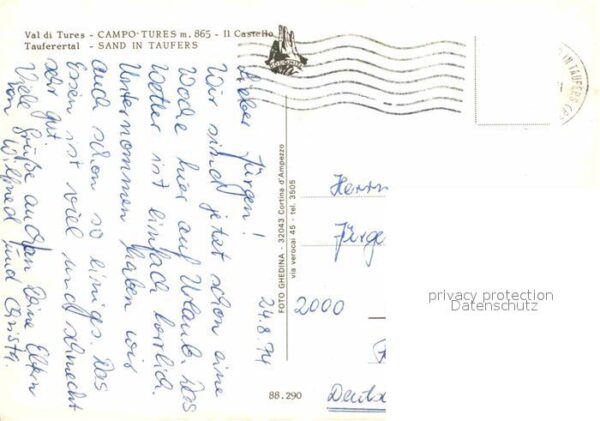 Val di Tures - CAMPO-TURES m. 865 - Il Castello
Tauferertal - SAND IN TAUFERS
24.8.74
Lieber Jürgen!
Wir sind jetzt schon eine
Woche hier auf Urlaub. Das
Wetter ist einfach herrlich.
Unternommen haben wir
auch schon so einiges. Das
Essen ist viel und schmeckt
sehr gut.
Viele Grüße auch an Deine Eltern
von Wilfried und Christa.
FOTO GHEDINA - 32043 Cortina d'Ampezzo
via verocai 45 - tel. 3505
88.290
IN TAUFERS
Herrn
Jürge
2000
Deutsc
privacy protection
Datenschutz